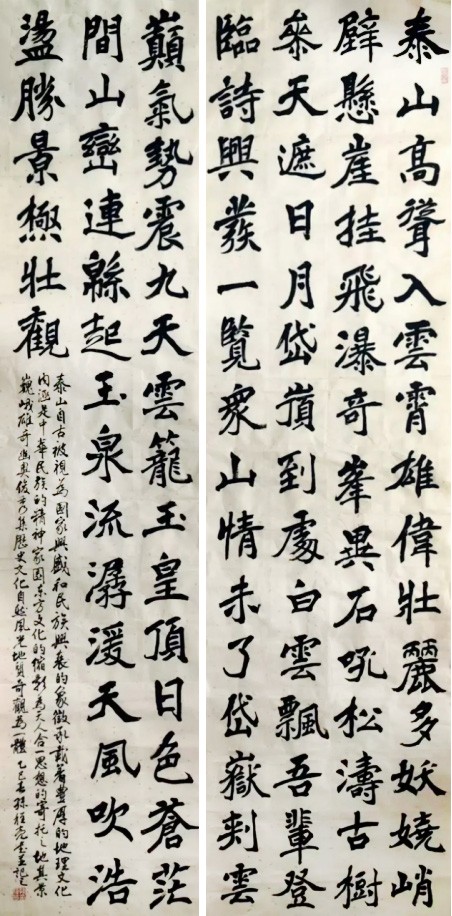 泰山高聳入雲霄雄偉壯麗多妖嬈峭
壁懸崖挂飛瀑奇峯異石吼松濤古樹
參天遮日月岱嶺到處白雲飄吾輩登
臨詩興發一覽衆山情未了岱嶽刺雲
巔氣勢震九天雲籠玉皇頂日色蒼茫
間山巒連緜起玉泉流潺湲天風吹浩
盪勝景極壯觀
泰山自古被視為國家興盛和民族興衰的象徵承載着豐厚的地理文化
内涵是中華民族的精神家園东方文化的縮影為天人合一思想的寄托之地其景
巍峨雄奇幽奥俊秀集歷史文化自然風光地質奇觀為一體 乙巳春孫